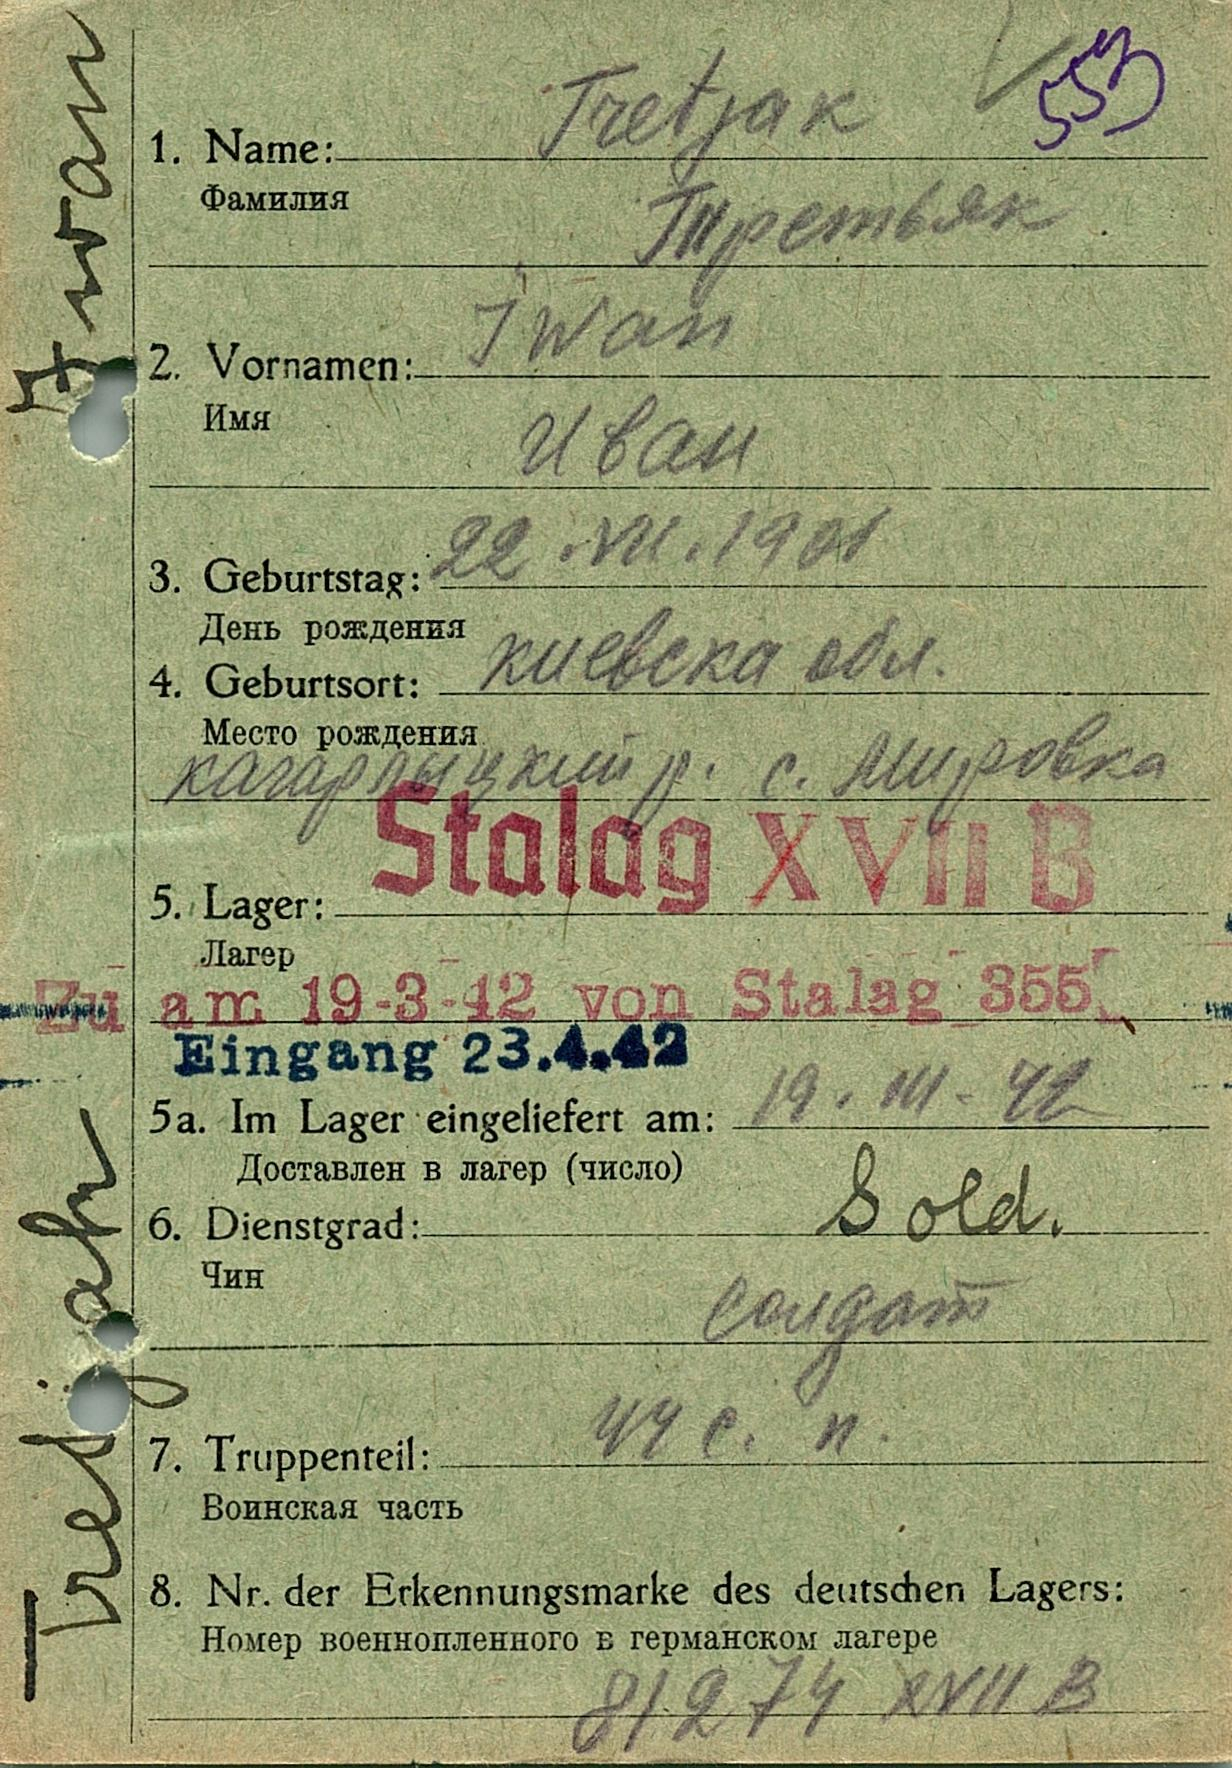 553
Tretjak
1. Name:
Фамилия
Третьяк
Iwan
2. Vornamen:
Имя
Иван
3. Geburtstag: 22.VII.1901
День рождения
4. Geburtsort: киевска обл.
Место рождения
кагарлыцкий р. с. Мировка
Stalag XVII B
5. Lager:
Лагер
Zu am 19-3-42 von Stalag 355
Eingang 23.4.42
5a. Im Lager eingeliefert am: 19.III.42
Доставлен в лагер (число)
6. Dienstgrad: Sold.
Чин
солдат
7. Truppenteil: 44 с. п.
Воинская часть
8. Nr. der Erkennungsmarke des deutschen Lagers:
Номер военнопленного в германском лагере
81274 XVII B
Tretjak Iwan